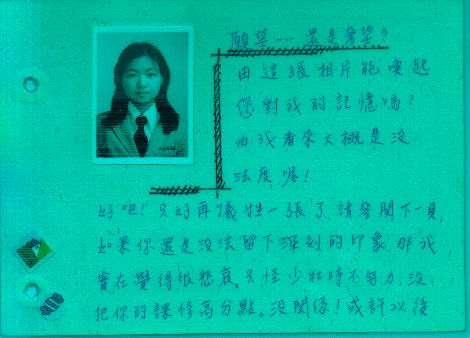 願望--- 還是希望?
由這張相片能喚起
您對我的記憶嗎?
由我看來大概是沒
法度喔!
好吧!只好再犧牲一張了,請參閱下一頁,
如果你還是沒法留下深刻的印象,那我
實在覺得很悲哀。只怪少壯時不努力,沒
把你的課修高分點。沒關係!或許以後